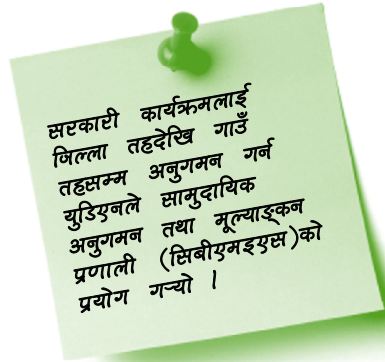 सरकारी कार्यक्रमलाई
जिल्ला तहदेखि गाउँ
तहसम्म अनुगमन गर्न
युडिएनले सामुदायिक
अनुगमन तथा मूल्याङ्कन
प्रणाली (सिबीएमइएस)को
प्रयोग गऱ्यो ।